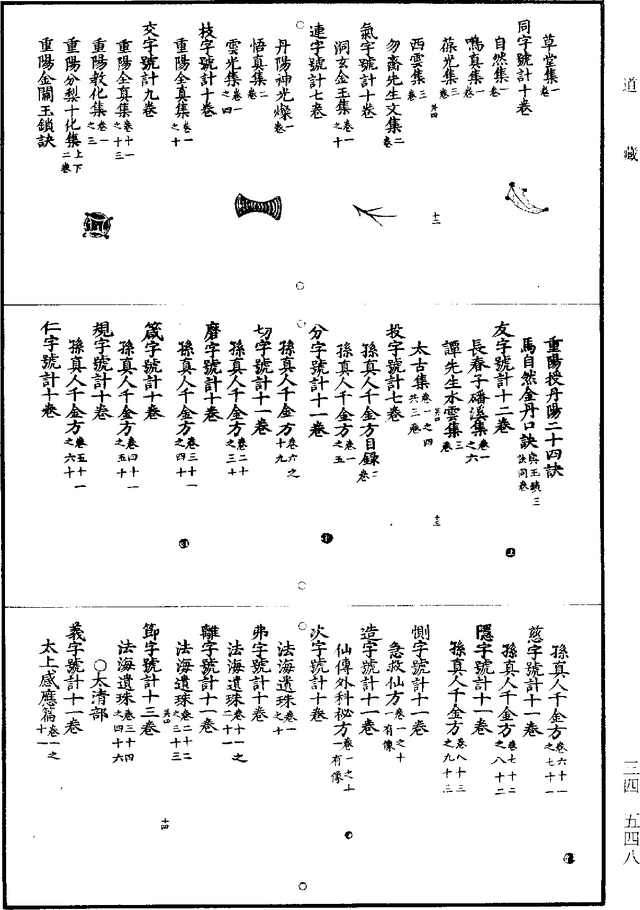 道藏
草堂集一卷
同字號計十卷
自然集一卷
鳴真集一卷
葆光集三卷
西雲集三卷 其四
勿齋先生文集二卷
氣字號計十卷
洞玄金玉集卷一之十
連字號計七卷
丹陽神光燦一卷
悟真集二卷
雲光集卷一之四
枝字號計十卷
重陽全真集卷一之十
交字號計九卷
重陽全真集卷十一之十三
重陽教化集卷一之三
重陽分梨十化集上下二卷
重陽金關玉鎖訣
十二
重陽授丹陽二十四訣
馬自然金丹口訣與玉鎖三訣同卷
友字號計十二卷
長春子磻溪集卷一之六
譚先生水雲集三卷 其四
太古集卷一之四共三卷
投字號計七卷
孫真人千金方目錄二卷
孫真人千金方卷一之五
分字號計十一卷
孫真人千金方卷六之十九
切字號計十一卷
孫真人千金方卷二十之三十
磨字號計十卷
孫真人千金方卷三十一之四十
箴字號計十卷
孫真人千金方卷四十一之五十
規字號計十卷
孫真人千金方卷五十一之六十
仁字號計十卷
十三
孫真人千金方卷六十一之七十一
慈字號計十一卷
孫真人千金方卷七十二之八十二
隱字號計十一卷
孫真人千金方卷八十三之九十三
惻字號計十一卷
急救仙方卷一之十一有像
造字號計十一卷
仙傳外科秘方卷一之十一有像
次字號計十卷
法海遺珠卷一之十
弗字號計十卷
法海遺珠卷十一之二十一
離字號計十一卷
法海遺珠卷二十二之三十三
節字號計十三卷 其四
法海遺珠卷三十四之四十六
○太清部
義字號計十一卷
太上感應篇卷一之十一
十四
三四 五四八